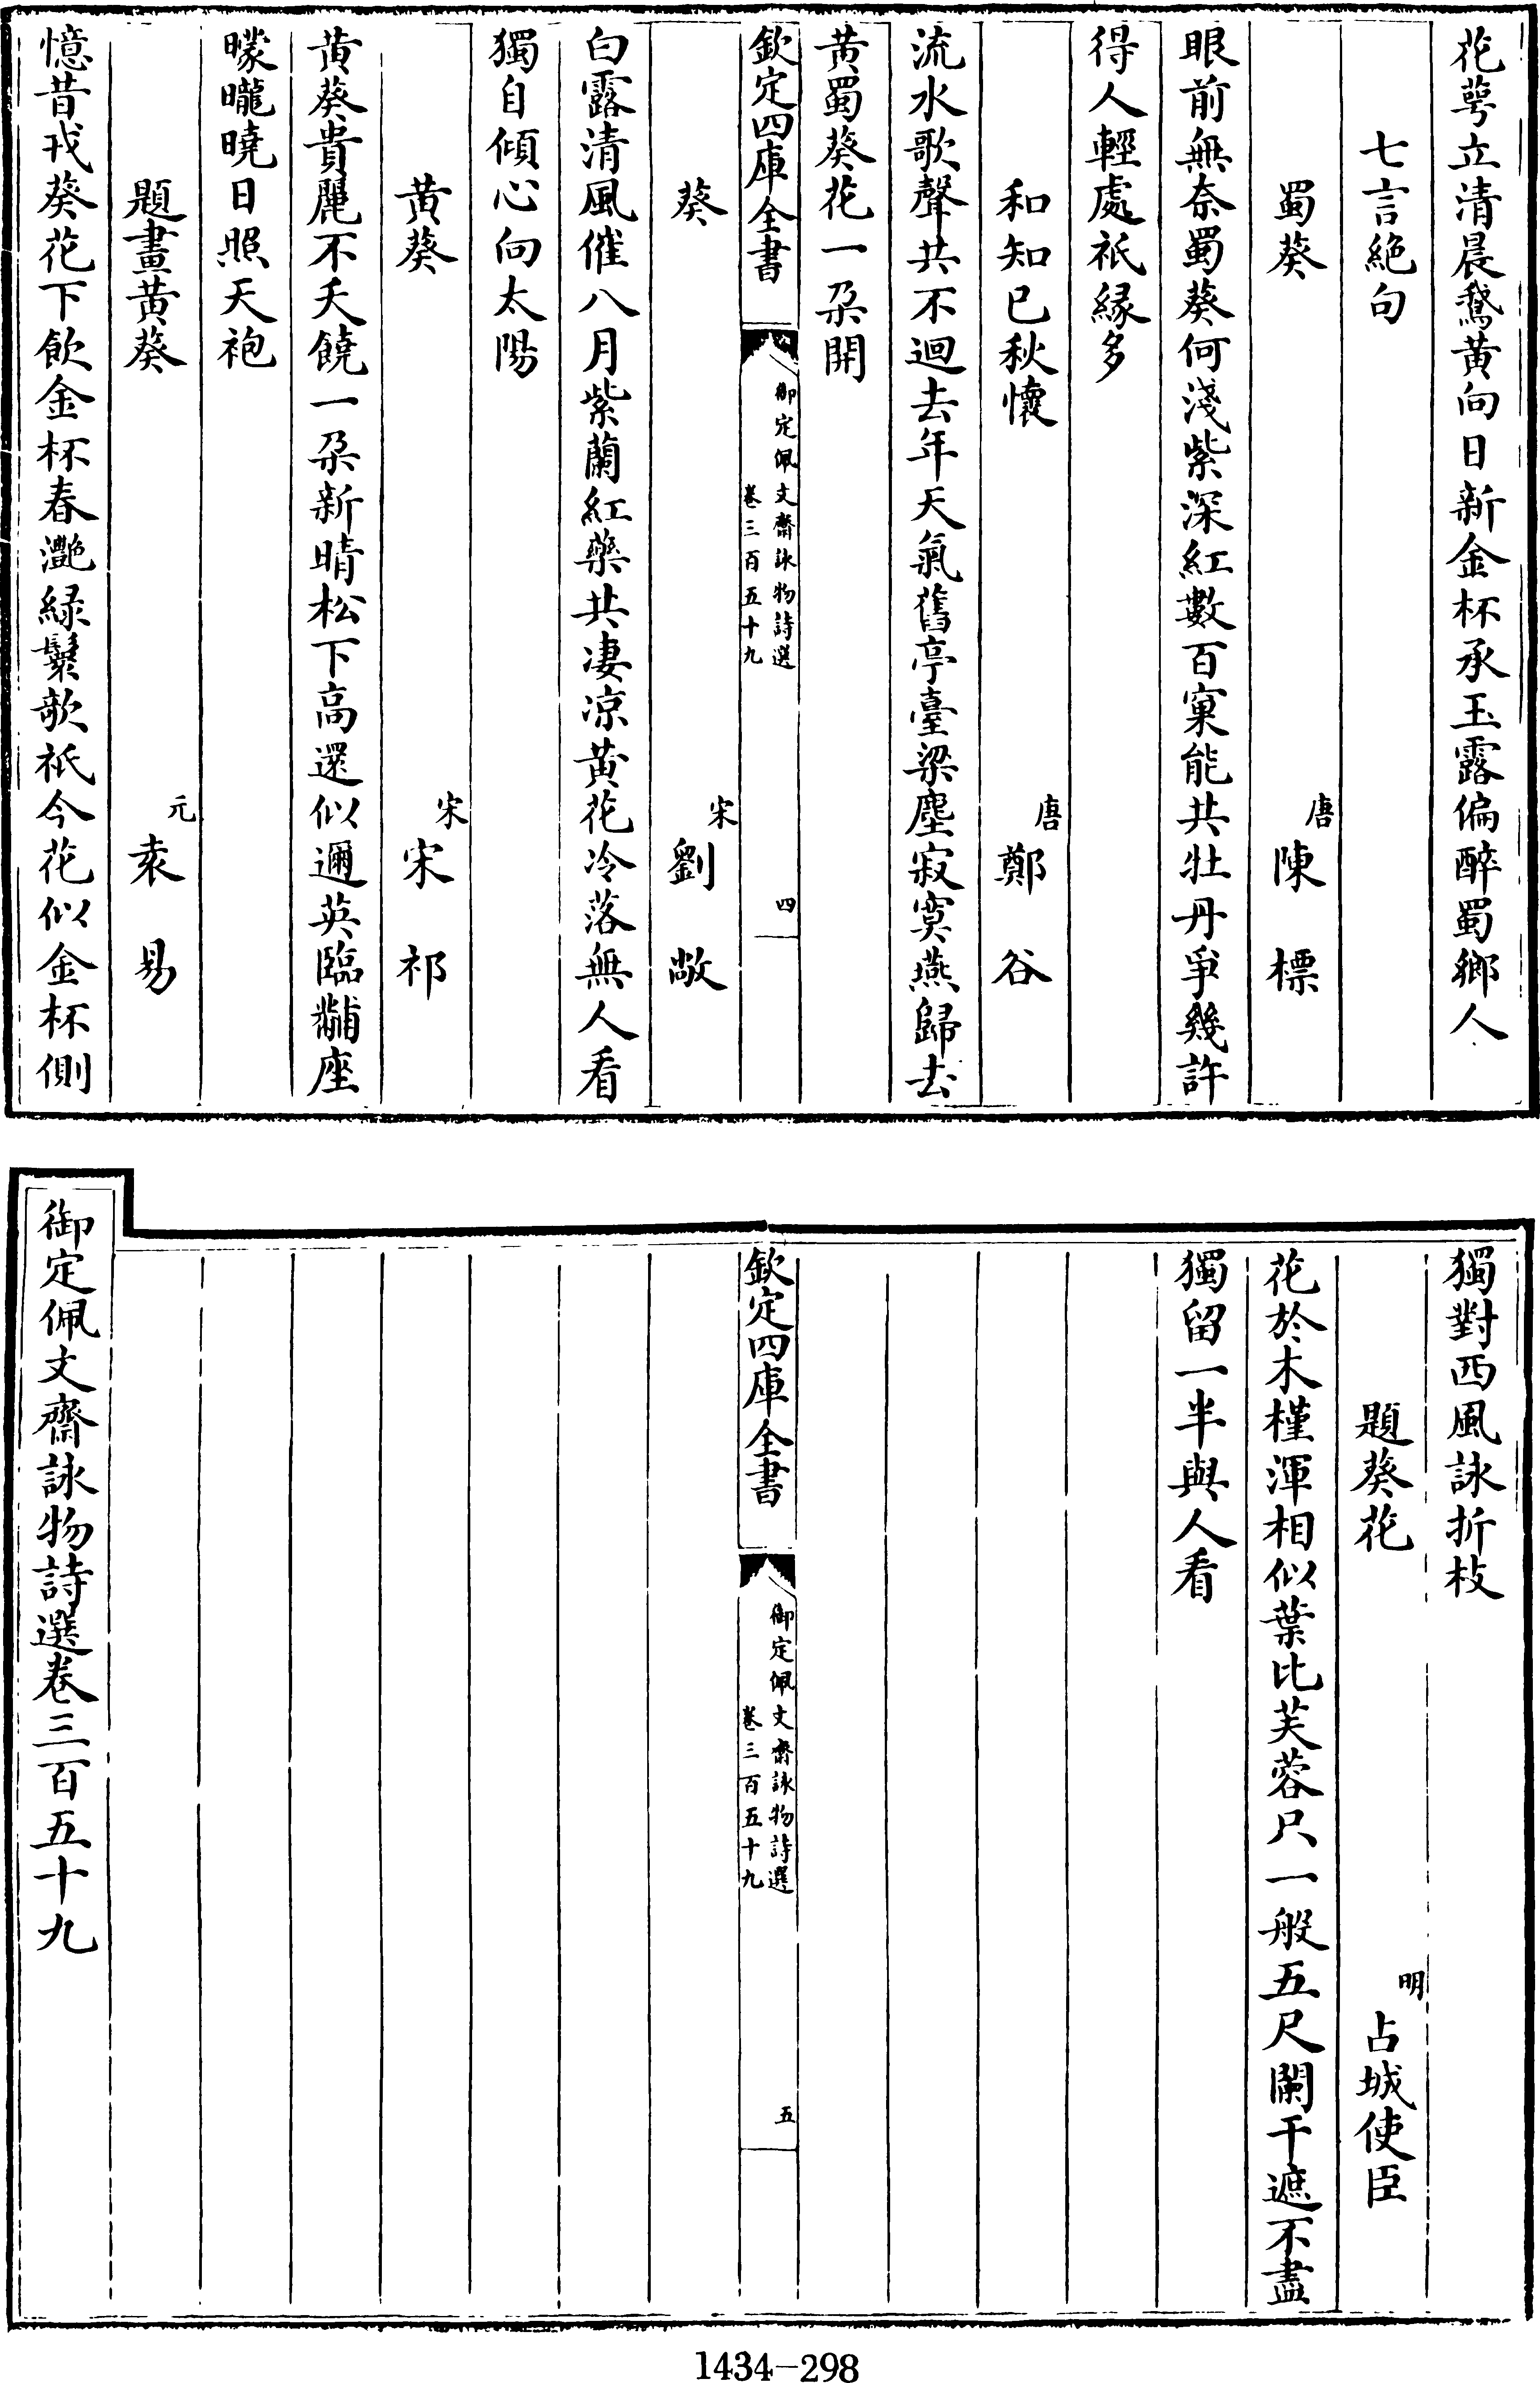 花萼立清晨鵞黄向日新金杯承玉露偏醉蜀鄉人
七言絶句
蜀葵　唐陳標
眼前無奈蜀葵何淺紫深紅數百窠能共牡丹爭幾許
得人輕處秖縁多
和知已秋懷　唐鄭谷
流水歌聲共不迴去年天氣舊亭臺梁塵寂寞燕歸去
黄蜀葵花一朶開
欽定四庫全書　御定佩文齋詠物詩選卷三百五十九　四
葵　宋劉敞
白露清風催八月紫蘭紅藥共凄凉黄花冷落無人看
獨自傾心向太陽
黄葵　宋宋祁
黄葵貴麗不夭饒一朶新晴松下高還似邇英臨黼座
曚曨曉日照天袍
題畫黄葵　元袁易
憶昔戎葵花下飲金杯春灔緑鬟歌秖今花似金杯側
獨對西風詠折枝
題葵花　明占城使臣
花於木槿渾相似葉比芙蓉只一般五尺闌干遮不盡
獨留一半與人看
欽定四庫全書　御定佩文齋詠物詩選卷三百五十九　五
御定佩文齋詠物詩選卷三百五十九
1434-298